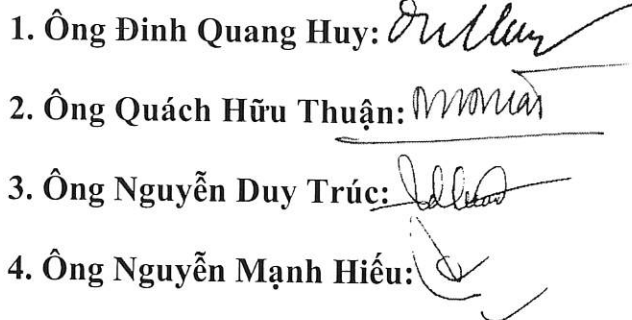 1. Ông Đinh Quang Huy:
2. Ông Quách Hữu Thuận:
3. Ông Nguyễn Duy Trúc:
4. Ông Nguyễn Mạnh Hiếu: